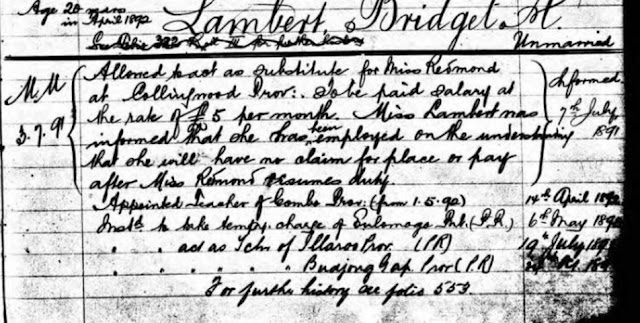 Age 20 years
in April 1892
Lambert Bridget M.
Unmarried
MM
3.7.91
Allowed to act as substitute for Miss Redmond
at Collingwood Prov:. To be paid salary at
the rate of £5 per month. Miss Lambert was
informed that she has been employed on the understanding
that she will have no claim for place or pay
after Miss Redmond resumes duty.
Informed
7th July
1891
Appointed Teacher of Combo Prov. (from 1.5.92) 14th April 1892
Instd to take tempry. charge of Pub. (P.R.) 6th May
" " act as Tchr of Illaroo Prov. (PR) 19th July
" " " " " Budjong Gap Prov (P.R)
For further history see folio 553